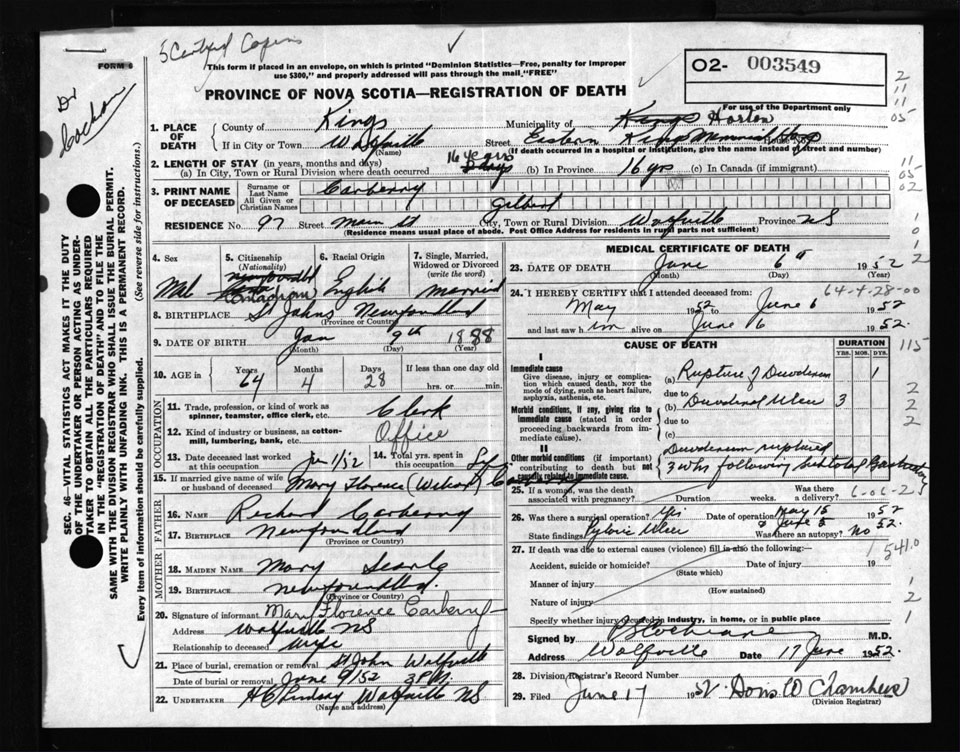 FORM 6
This form if placed in an envelope, on which is printed "Dominion Statistics—Free, penalty for improper
use $300," and properly addressed will pass through the mail "FREE"
O2- 003549
PROVINCE OF NOVA SCOTIA—REGISTRATION OF DEATH
For use of the Department only
Dr Cochran
2
11
11
05
1. PLACE OF DEATH
County of Kings
Municipality of Kings Horton
If in City or Town Wolfville
(Name)
Street Eastern Kings Memorial Hosp
(If death occurred in a hospital or institution, give the name instead of street and number)
2. LENGTH OF STAY (in years, months and days)
(a) In City, Town or Rural Division where death occurred 16 years
days
(b) In Province 16 yrs
(c) In Canada (if immigrant)
11
05
02
3. PRINT NAME OF DECEASED
Surname or Last Name Carberry
All Given or Christian Names Gilbert
RESIDENCE No 97 Street Main St City, Town or Rural Division Wolfville Province NS
(Residence means usual place of abode. Post Office Address for residents in rural parts not sufficient)
SEC. 46—VITAL STATISTICS ACT MAKES IT THE DUTY
OF THE UNDERTAKER OR PERSON ACTING AS UNDER-
TAKER TO OBTAIN ALL THE PARTICULARS REQUIRED
IN THE "REGISTRATION OF DEATH" AND TO FILE THE
SAME WITH THE DIVISION REGISTRAR WHO SHALL ISSUE THE BURIAL PERMIT.
WRITE PLAINLY WITH UNFADING INK. THIS IS A PERMANENT RECORD.
Every item of information should be carefully supplied. (See reverse side for instructions.)
4. Sex
5. Citizenship
(Nationality)
6. Racial Origin
7. Single, Married,
Widowed or Divorced
(write the word)
Male
English
Married
8. BIRTHPLACE St Johns Newfoundland
(Province or Country)
9. DATE OF BIRTH Jan 9th 1888
(Month) (Day) (Year)
10. AGE in
Years Months Days If less than one day old
64 4 28 hrs. or min.
OCCUPATION
11. Trade, profession, or kind of work as
spinner, teamster, office clerk, etc. Clerk
12. Kind of industry or business, as cotton-
mill, lumbering, bank, etc. Office
13. Date deceased last worked
at this occupation 1/52
14. Total yrs. spent in
this occupation
15. If married give name of wife
or husband of deceased Mary Florence
FATHER
16. NAME Richard Carberry
17. BIRTHPLACE Newfoundland
(Province or Country)
MOTHER
18. MAIDEN NAME Mary Searle
19. BIRTHPLACE Newfoundland.
(Province or Country)
20. Signature of informant Mary Florence Carberry
Address Wolfville NS
Relationship to deceased Wife
21. Place of burial, cremation or removal St John Wolfville
Date of burial or removal June 9/52 3 P.M.
22. UNDERTAKER H C Lindsay Wolfville NS
(Name and address)
MEDICAL CERTIFICATE OF DEATH
23. DATE OF DEATH June 6th 1952
(Month) (Day) (Year)
64-4-28-00
24. I HEREBY CERTIFY that I attended deceased from:
May 1952 to June 6 1952
and last saw h im alive on June 6 1952.
115
CAUSE OF DEATH
DURATION
YRS. MOS. DYS.
I
Immediate cause
Give disease, injury or complica-
tion which caused death, NOT the
mode of dying, such as heart failure,
asphyxia, asthenia, etc.
(a) Rupture of Duodenum 1
due to
Morbid conditions, if any, giving rise to
immediate cause (stated in order
proceeding backwards from im-
mediate cause).
(b) Duodenal Ulcer 3
due to
(c)
II
Other morbid conditions (if important)
contributing to death but not
causally related to immediate cause.
Duodenum ruptured
3 wks following subtotal Gastrectomy
25. If a woman, was the death
associated with pregnancy? Duration weeks
Was there
a delivery?
6-06-2
26. Was there a surgical operation? Yes Date of operation May 15 1952
& June 5 52.
State findings Pyloric Ulcer Was there an autopsy? No
541.0
27. If death was due to external causes (violence) fill in also the following:—
Accident, suicide or homicide? Date of injury 19
(State which)
Manner of injury
(How sustained)
Nature of injury
Specify whether injury occurred in industry, in home, or in public place
Signed by Cochrane M.D.
Address Wolfville Date 17 June 1952.
28. Division Registrar's Record Number
29. Filed June 17 1952. Doris W Chambers
(Division Registrar)